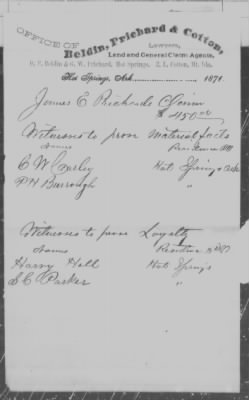 OFFICE OF
Beldin, Prichard & Cotton,
Lawyers,
Land and General Claim Agents,
Hot Springs, Ark. 187
James E Richards Claim
$450.00
Witnesses to prove Material facts
Names Residence
C W
Hot Springs
P H Burrough "
Witnesses to prove Loyalty
Names Residence
Harry Hall Hot Springs
S C Parker "